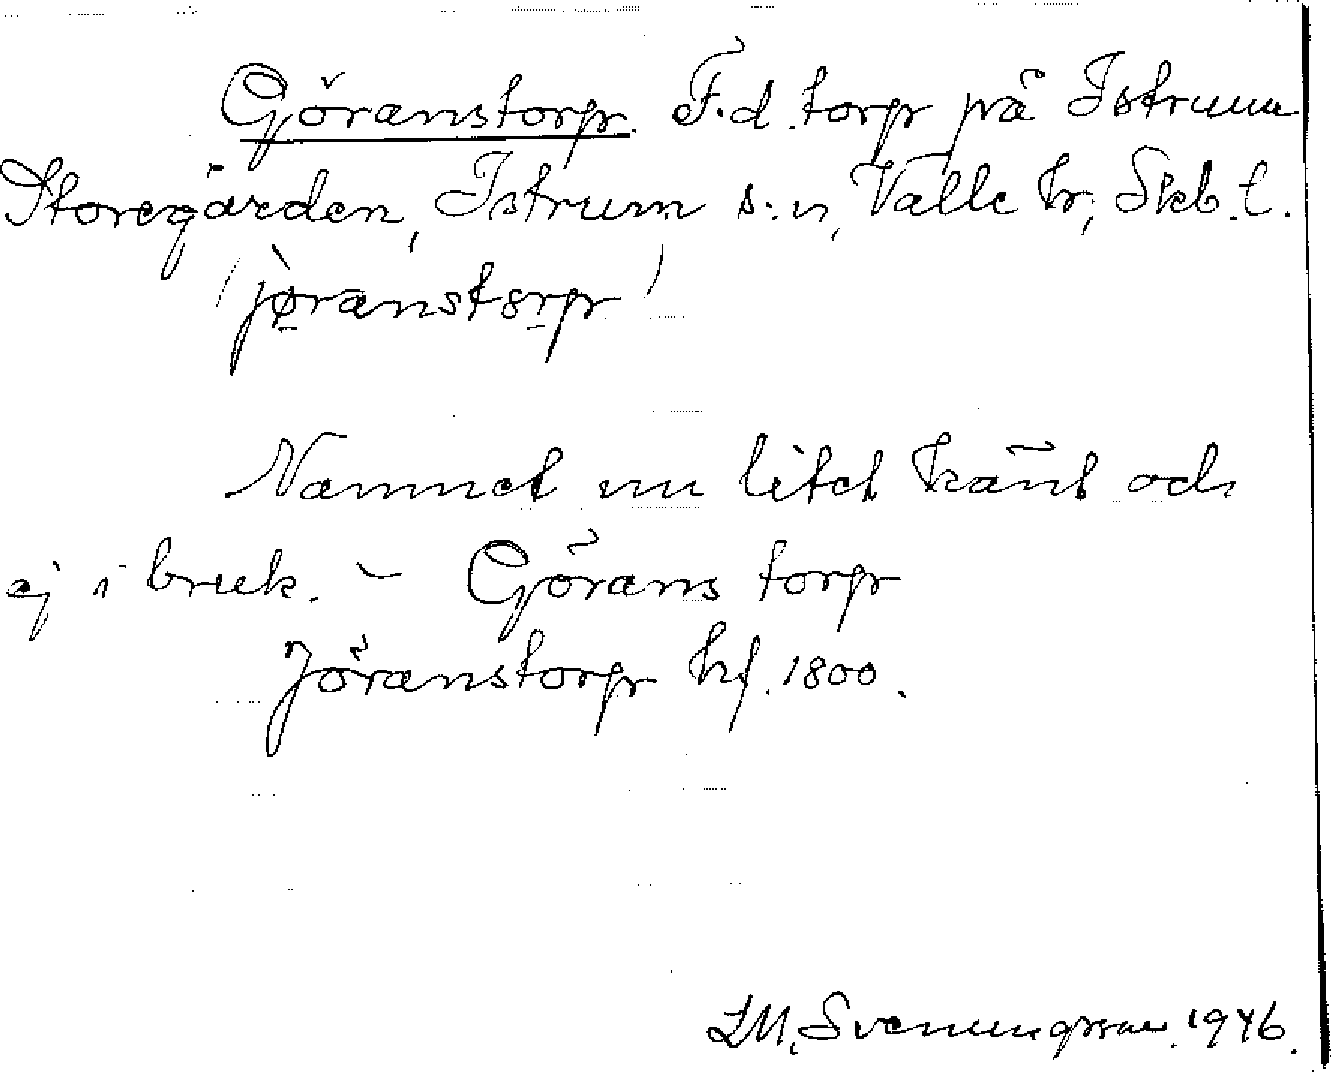 Göranstorp. F.d. torp på Istrum
Storegården, Istrum s:n, Valle hr, Skb. l.
(jøranstorp)
Namnet nu litet känt och
ej i bruk. – Görans torp
Jöranstorp hf. 1800.
L.M. Svenungsson. 1946.